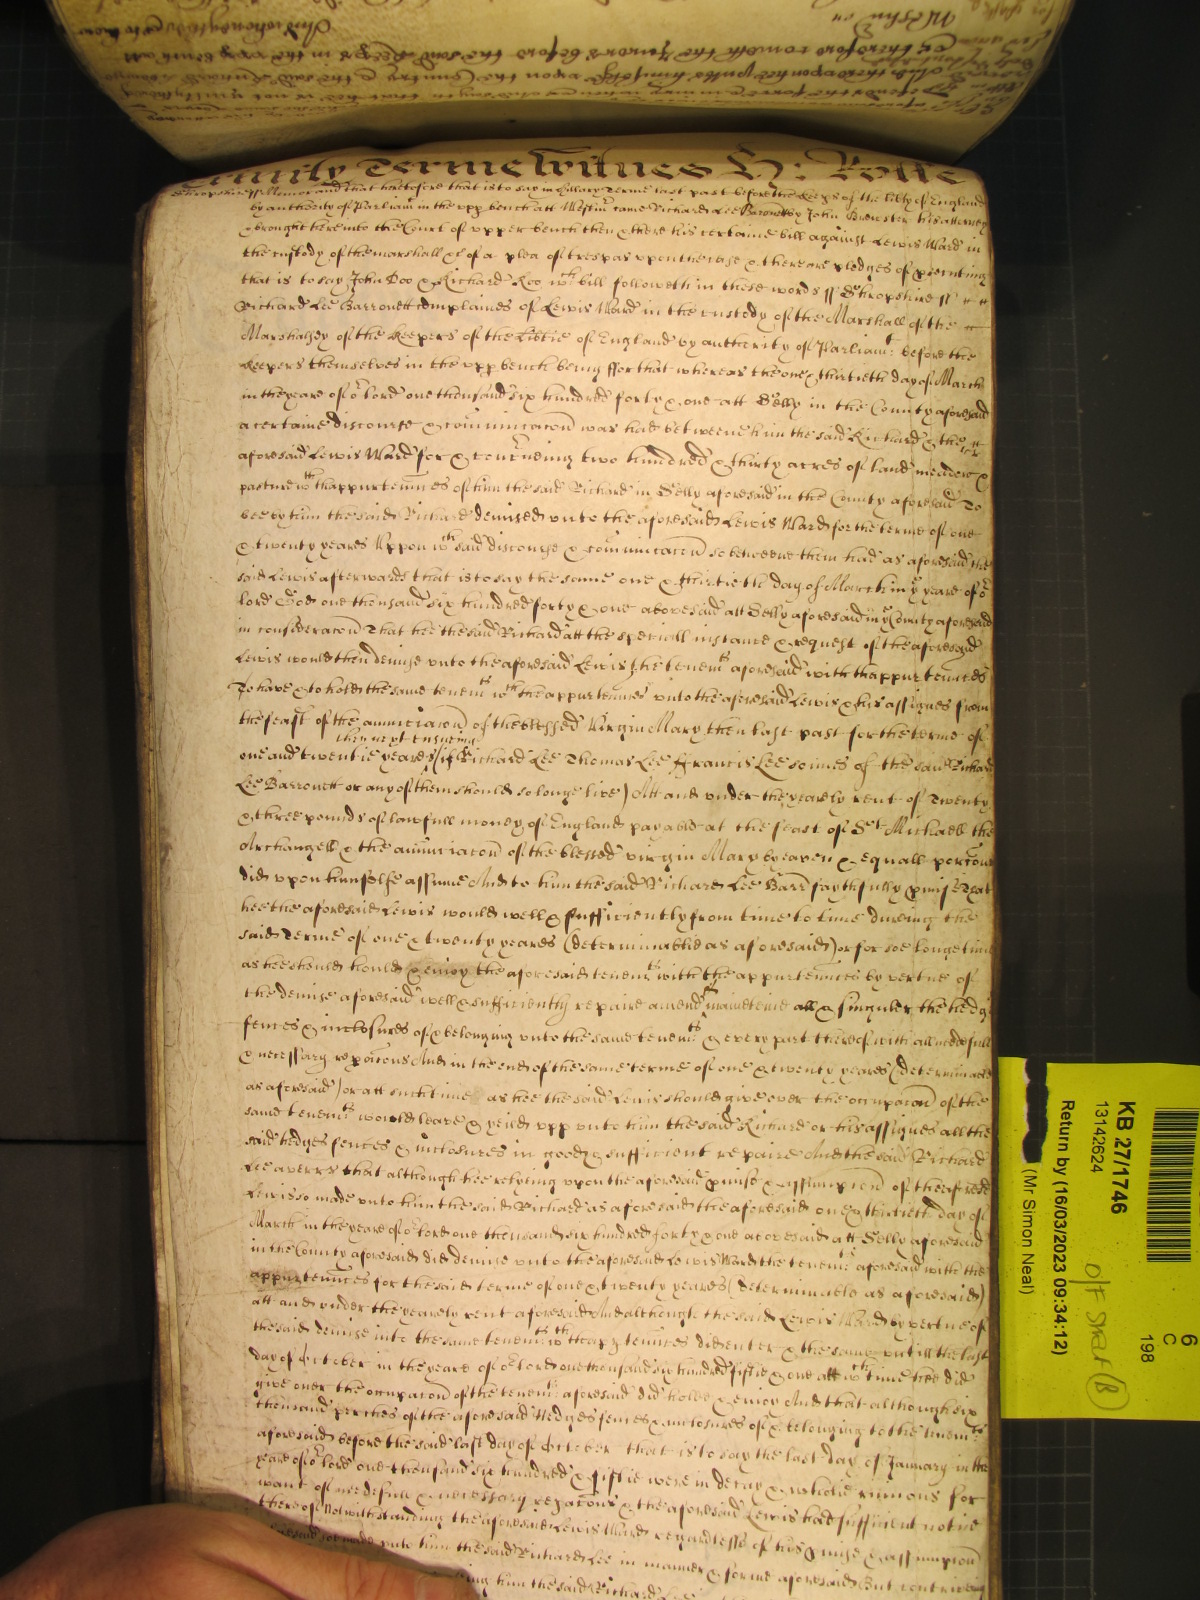 Trinity Terme Witnes H: Rolle
Shropshire ss Memorand that heretofore that is to say in Hillary Terme last past before the Keeps of the libty of England
by authority of Parliamt in the upp bench att Westmr came Richard Lee Baronett by John Brewster his attorney
& brought here into the Court of upper bench then & there his certaine bill against Lewis Ward in
the custody of the marshall &c of a plea of trespas upon the case & there are pledges of prsecuting
that is to say John Doo & Richard Roo wch bill followeth in these words ss Shropshire ss
Richard Lee Barronett complaines of Lewis Ward in the custody of the Marshall of the
Marshalsey of the keepers of the Libtie of England by authority of Parliamt: before the
keepers themselves in the upp bench being ffor that whereas the one & thirtieth day of March
in the yeare of or lord one thousand six hundred forty & one att Selly in the County aforesaid
a certaine discourse & comunicacon was had betweene him the said Richard & the
aforesaid Lewis Ward for & concrneing two hundred & thirty acres of land meadow &
pasture wth thappurtenncs of him the said Richard in Selly aforesaid in the County aforesaid To
bee by him the said Richard demised unto the aforesaid Lewis Ward for the terme of one
& twenty yeares Uppon wch said discourse & comunicacon so betweene them had as aforesaid the
said Lewis afterwards that is to say the same one & thirtieth day of March in ye yeare of or
lord God one thousand six hundred forty & one abovesaid att Selly aforesaid in ye County aforesaid
in consideracon That hee the said Richard att the speciall instance & request of the aforesaid
Lewis would then demise unto the aforesaid Lewis the tenemts aforesaid with thappurtenncs
To have & to hold the same tenemts wth the appurtenncs unto the aforesaid Lewis & his assignes from
the feast of the annuciacon of the blessed Virgin Mary then last past for the terme of
then next ensueing
one and twentie yeares (if Richard Lee Thomas Lee & Francis Lee sonnes of the said Richard
Lee Barronett or any of them should so longe live) Att and under the yearely rent of Twenty
& three pounds of lawfull money of England payable at the feast of St Michaell the
Archangell & the annuciacon of the blessed virgin Mary by eaven & equall porcons
did upon himselfe assume And to him the said Richard Lee Barrt faythfully pmise That
hee the aforesaid Lewis would well & sufficiently from time to time dureing the
said Terme of one & twenty yeares (determinable as aforesaid) or for soe longe time
as hee should hould & enioy the aforesaid tenemts with the appurtenncs by vertue of
the demise aforesaid well & sufficiently repaire amend & mainteine all & singuler the hedges
fences & inclosures of & belonging unto the same tenemts & every part thereof with all needfull
& necessary repacons And in the end of the same terme of one & twenty yeares (determinable
as aforesaid) or att such time as hee the said Lewis should give over the occupacon of the
same tenemts would leave & yeild upp unto him the said Richard or his assignes all the
said hedges fences & inclosures in good & sufficient repaire And the said Richard
Lee averrs that although hee relying upon the aforesaid pmise & assumpcon of the aforesd
Lewis so made unto him the said Richard as aforesaid the aforesaid one & thirtieth day of
March in the yeare of or lord one thousand six hundred forty & one abovesaid att Selly aforesaid
in the County aforesaid did demise unto the aforesaid Lewis Ward the tenemts aforesaid with the
appurtenncs for the said terme of one & twenty yeares (determinable as aforesaid)
att and under the yearely rent aforesaid And although the said Lewis Ward by vertue of
the said demise into the same tenemts wth thapptennces did enter & the same untill the last
day of October in the yeare of or lord one thousand six hundred fiftie & one att wch time hee did
give over the occupacon of the tenemts aforesaid did holde & enioy And that although six
thousand perches of the aforesaid Hedges fences & inclosures of & belonging to the tenemts
aforesaid before the said last day of October that is to say the last day of January in the
yeare of or lord one thousand six hundred & fiftie were in decay & wholie ruinous for
want of needfull & necessary repacons & the aforesaid Lewis had sufficient notice
thereof Notwithstanding the aforesaid Lewis Ward regardlesse of his pmise & assumpcon
aforesaid soe made unto him the said Richard Lee in manner & forme aforesaid But contriveing
him the said Richard Lee
KB 27/1746
13142624
Return by (16/03/2023 09:34:12)
(Mr Simon Neal)
6
C
198